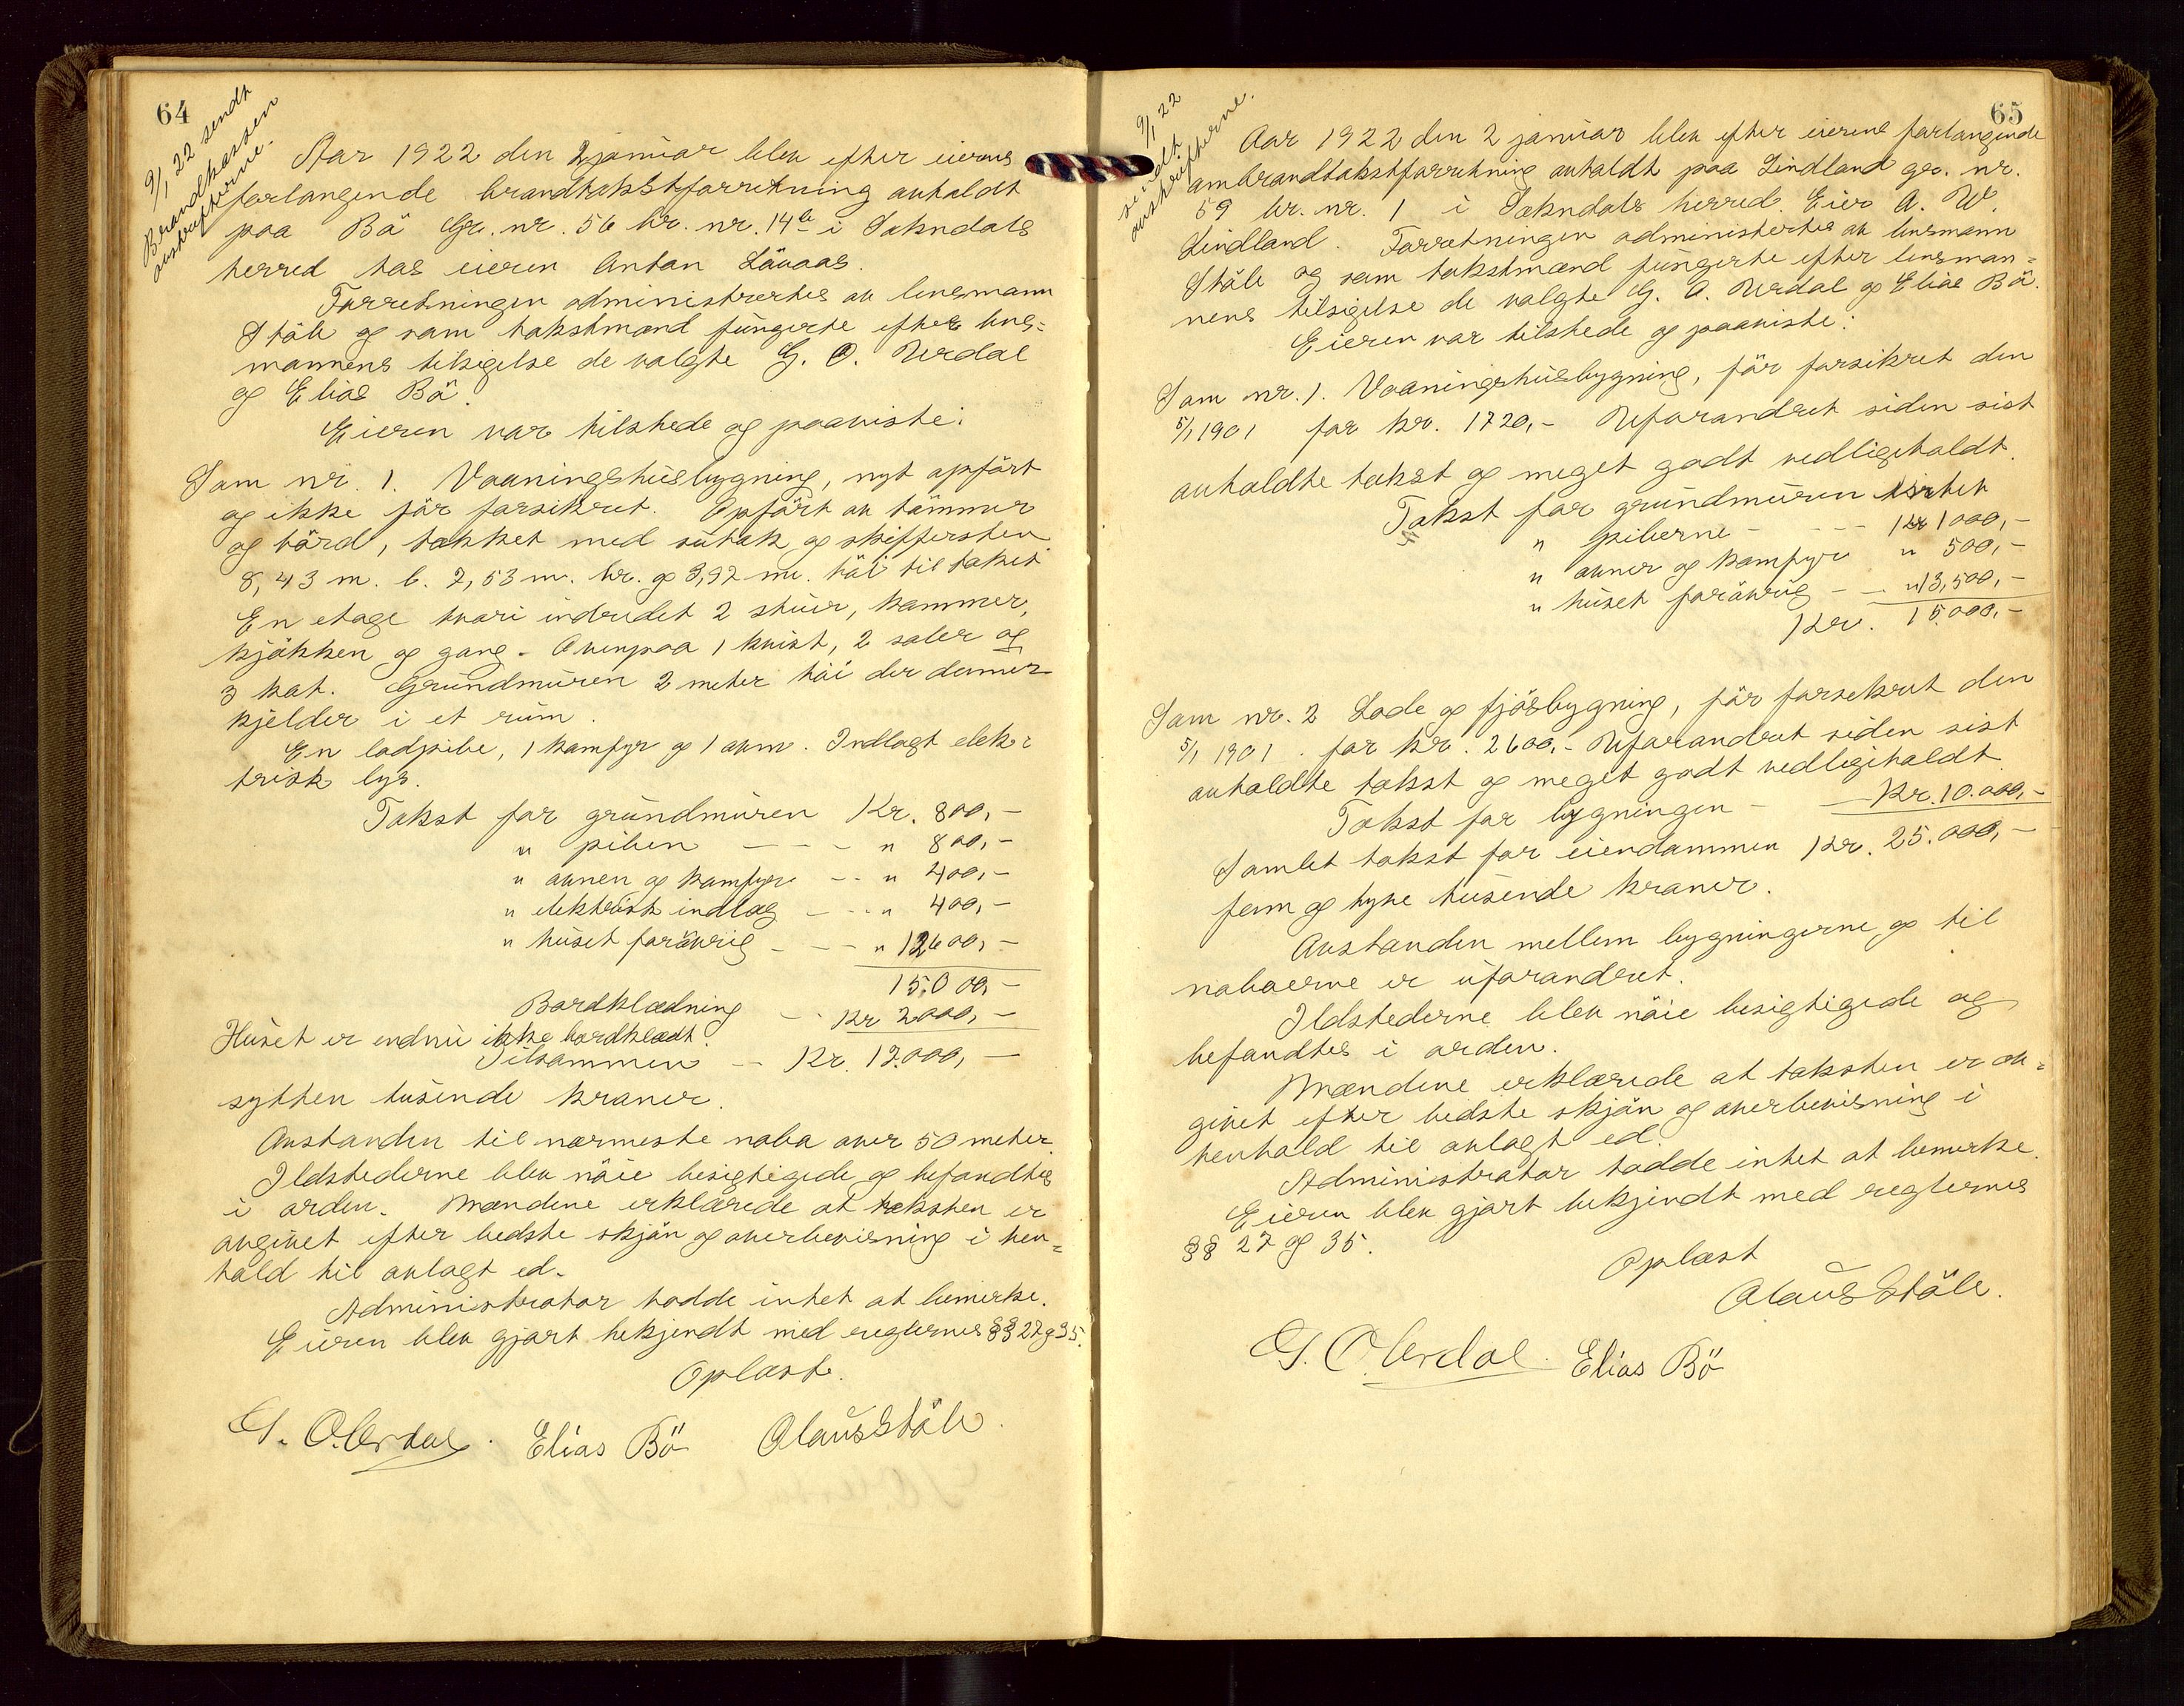 64
9/1 22 sendt
Brandkassen
avskrifterne.
Aar 1922 den 2 januar blev efter eierens
forlangende brandtakstforretning avholdt
paa Bö Gr. nr. 56 br. nr. 14 b i Sokndals
herred hos eieren Anton Lövaas.
Forretningen administrertes av lensmann
Ståle og som takstmænd fungerte efter lens=
mannens tilsigelse de valgte G. O. Urdal
og Elias Bö.
Eieren var tilstede og paaviste:
Som nr. 1. Vaaningshusbygning, nyt opfört
og ikke för forsikret. Opfört av tömmer
og bord, tækket med sutak og skiffersten
8,43 m. l. 7,53 m. br. og 3,97 m. höi til taket
En etage hvori indredet 2 stuer, kammer,
kjökken og gang. Ovenpaa 1 kvist, 2 saler og
3 kot. Grundmuren 2 meter höi der danner
kjelder i et rum.
En lodpibe, 1 komfyr og 1 ovn. Indlagt elek=
trisk lys.
Takst for grundmuren Kr. 800,-
" piben - - - " 800,-
" ovnen og komfyr - - " 400,-
" elektrisk indlæg - - - " 400,-
" huset forövrig - - - " 12600,-
15.000,-
Bordklædning - - Kr 2000,-
Huset er endnu ikke bordklædt.
Tilsammen - - Kr. 17.000,-
sytten tusende kroner.
Avstanden til nærmeste nabo over 50 meter.
Ildstederne blev nöie besigtigede og befandtes
i orden. Mændene erklærede at taksten er
avgivet efter bedste skjön og overbevisning i hen=
hold til avlagt ed.
Administrator hadde intet at bemerke.
Eieren blev gjort bekjendt med reglernes §§ 27 og 35.
Oplæst.
G. O. Urdal. Elias Bö Olaus Ståle.
65
9/1 22
sendt
avskrifterne.
Aar 1922 den 2 januar blev efter eierens forlangende
ombrandtakstforretning avholdt paa Lindland gr. nr.
59 br. nr. 1 i Sokndals herred. Eier A. W.
Lindland. Forretningen administertes av lensmann
Ståle og som takstmænd fungerte efter lensman=
nens tilsigelse de valgte G. O. Urdal og Elias Bö.
Eieren var tilstede og paaviste:
Som nr. 1. Vaaningshusbygning, för forsikret den
5/1 1901 for kr. 1720,- Uforandret siden sist
avholdte takst og meget godt vedligeholdt.
Takst for grundmuren intet
" piberne - - - - Kr 1000,-
" ovner og komfyr " 500,-
" huset forövrig - - " 13,500,-
Kr. 15.000,-
Som nr. 2 Lade og fjösbygning, för forsekret den
5/1 1901. for kr. 2600,- Uforandret siden sist
avholdte takst og meget godt vedligeholdt
Takst for bygningen - Kr. 10.000,-
Samlet takst for eiendommen Kr. 25.000,-
fem og tyve tusende kroner.
Avstanden mellem bygningerne og til
naboerne er uforandret.
Ildstederne blev nöie besigtigede og
befandtes i orden.
Mændene erklærede at taksten er av=
givet efter bedste skjön og overbevisning i
henhold til avlagt ed.
Administrator hadde intet at bemerke.
Eieren blev gjort bekjendt med reglernes
§§ 27 og 35.
Oplæst
Olaus Ståle.
G. O. Urdal. Elias Bö